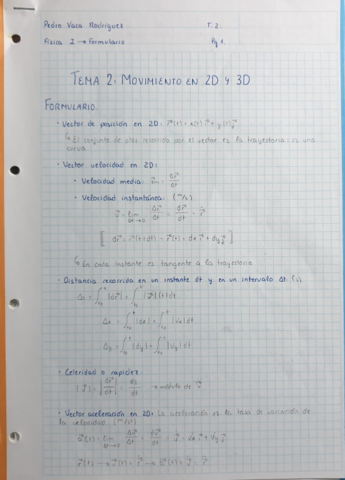 Pedro Vaca Rodríguez T. 2.
Física I → Formulario Pg 1.
TEMA 2: MOVIMIENTO EN 2D Y 3D
FORMULARIO.
· Vector de posición en 2D: r⃗(t) = x(t) i⃗ + y(t) j⃗
↳ El conjunto de ptos recorrido por el vector es la trayectoria: es una
curva.
· Vector velocidad en 2D:
• Velocidad media: v⃗m = Δr⃗/Δt
• Velocidad instantánea: (m/s)
v⃗ = lim Δt→0 Δr⃗/Δt = dr⃗/dt = r⃗̇
[ dr⃗ = r⃗(t+dt) - r⃗(t) = dx i⃗ + dy j⃗ ]
↳ En cada instante es tangente a la trayectoria
· Distancia recorrida en un instante dt y en un intervalo Δt.
Δs = ∫ |dr⃗| = ∫ |v⃗(t)| dt
Δx = ∫ |dx| = ∫ |vx| dt
Δy = ∫ |dy| = ∫ |vy| dt
· Celeridad o rapidez:
|v⃗| = |dr⃗/dt| = ds/dt → módulo de v⃗
· Vector aceleración en 2D: La aceleración es la tasa de variación de
la velocidad. (m/s²)
a⃗(t) = lim Δt→0 Δv⃗/Δt = dv⃗/dt